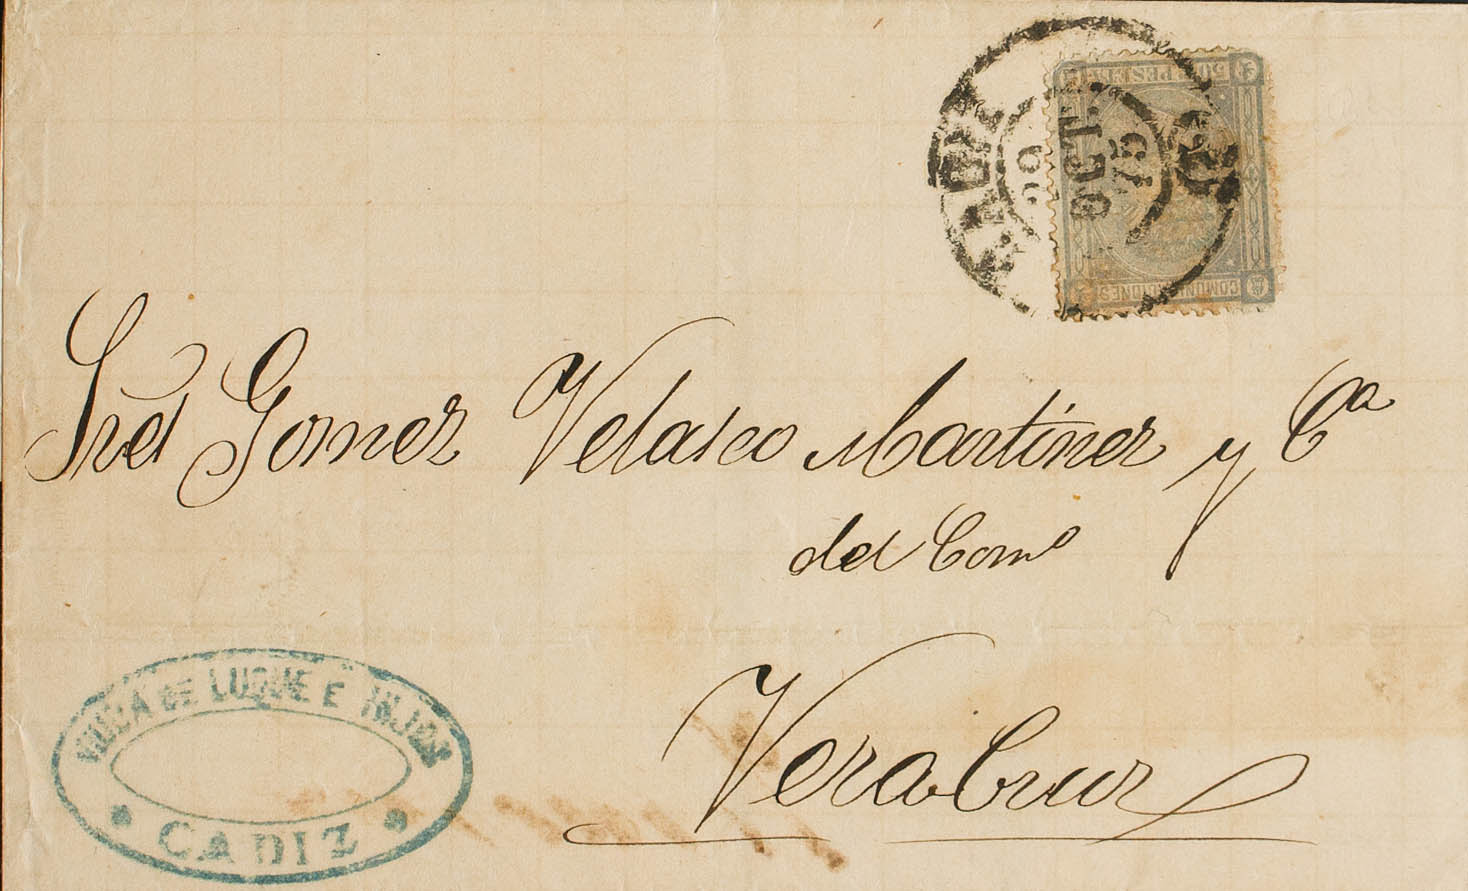 CADIZ
OCT.
COMUNICACIONES
Sres Gomez Velasco Martinez y Cª
del Comº
VeraCruz
VIUDA DE LUQUE E HIJOS
CADIZ